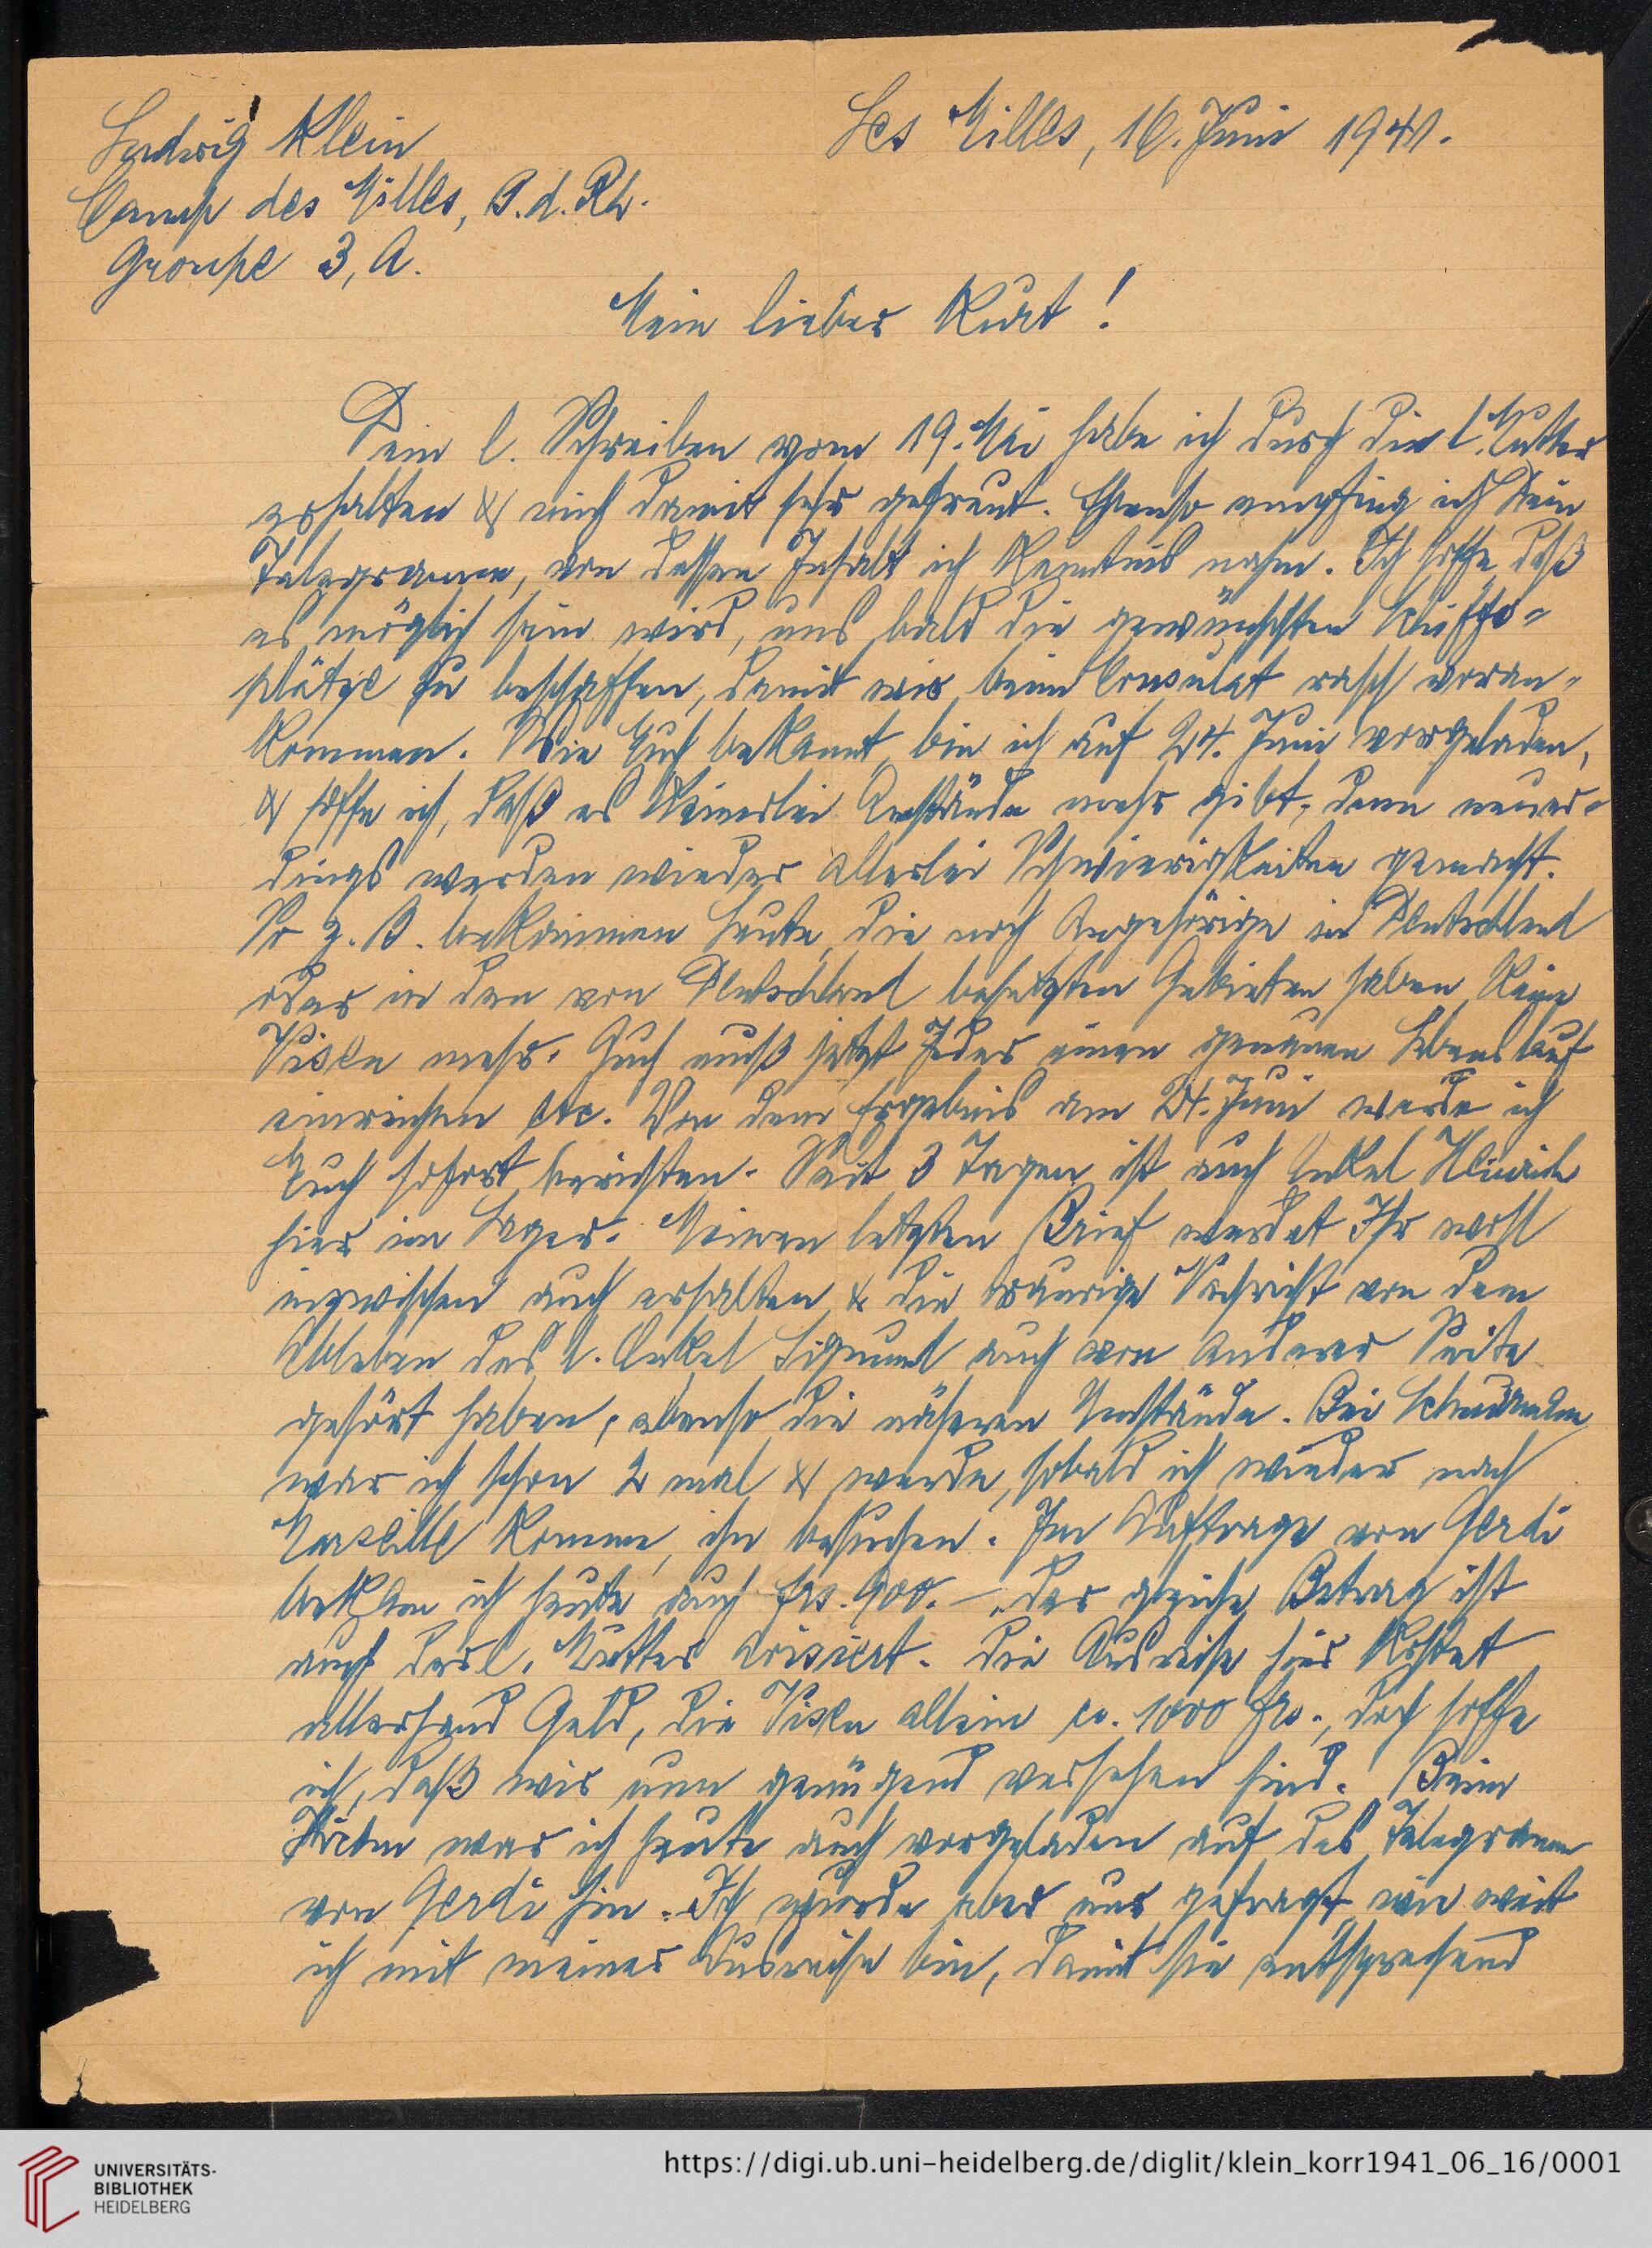 Ludwig Klein
Les Milles, 16. Juni 1941.
Camp des Milles, B.d.Rh.
Groupe 3, A.
Mein lieber Kurt!
Dein l. Schreiben vom 19. Mai habe ich durch die l. Mutter
erhalten & mich damit sehr gefreut. Ebenso empfing ich Dein
Telegramm, von dessen Inhalt ich Kenntnis nahm. Ich hoffe, daß
es möglich sein wird, uns bald die gewünschten Schiffs-
plätze zu beschaffen, damit wir beim Consulat rasch voran-
kommen. Wie Euch bekannt, bin ich auf 24. Juni vorgeladen,
& hoffe ich, daß es keinerlei Anstände mehr gibt, denn neuer-
dings werden wieder allerlei Schwierigkeiten gemacht.
So z. B. bekommen Leute, die noch Angehörige in Deutschland
oder in den von Deutschland besetzten Gebieten haben, keine
Visen mehr. Auch muß jetzt Jeder einen genauen Lebenslauf
einreichen etc. Von dem Ergebnis am 24. Juni werde ich
Euch sofort berichten. Seit 3 Tagen ist auch Onkel Heinrich
hier im Lager. Meinen letzten Brief werdet Ihr wohl
inzwischen auch erhalten & die traurige Nachricht von dem
Ableben des l. Onkel Sigmund auch von anderer Seite
gehört haben, ebenso die näheren Umstände. Bei
war ich schon 2 mal & werde, sobald ich wieder nach
Marseille komme, ihn besuchen. Im Auftrage von Gerdi
bekam ich heute auch frs. 900.-, der gleiche Betrag ist
auch der l. Mutter avisiert. Die Ausreise hier kostet
allerhand Geld, die Visen allein ca. 1000 frs., doch hoffe
ich, daß wir nun genügend versehen sind. Beim
Hicem war ich heute auch vorgeladen auf das Telegramm
von Gerdi hin. Ich wurde aber nur gefragt, wie weit
ich mit meiner Ausreise bin, damit sie entsprechend
UNIVERSITÄTS-
BIBLIOTHEK
HEIDELBERG
https://digi.ub.uni-heidelberg.de/diglit/klein_korr1941_06_16/0001